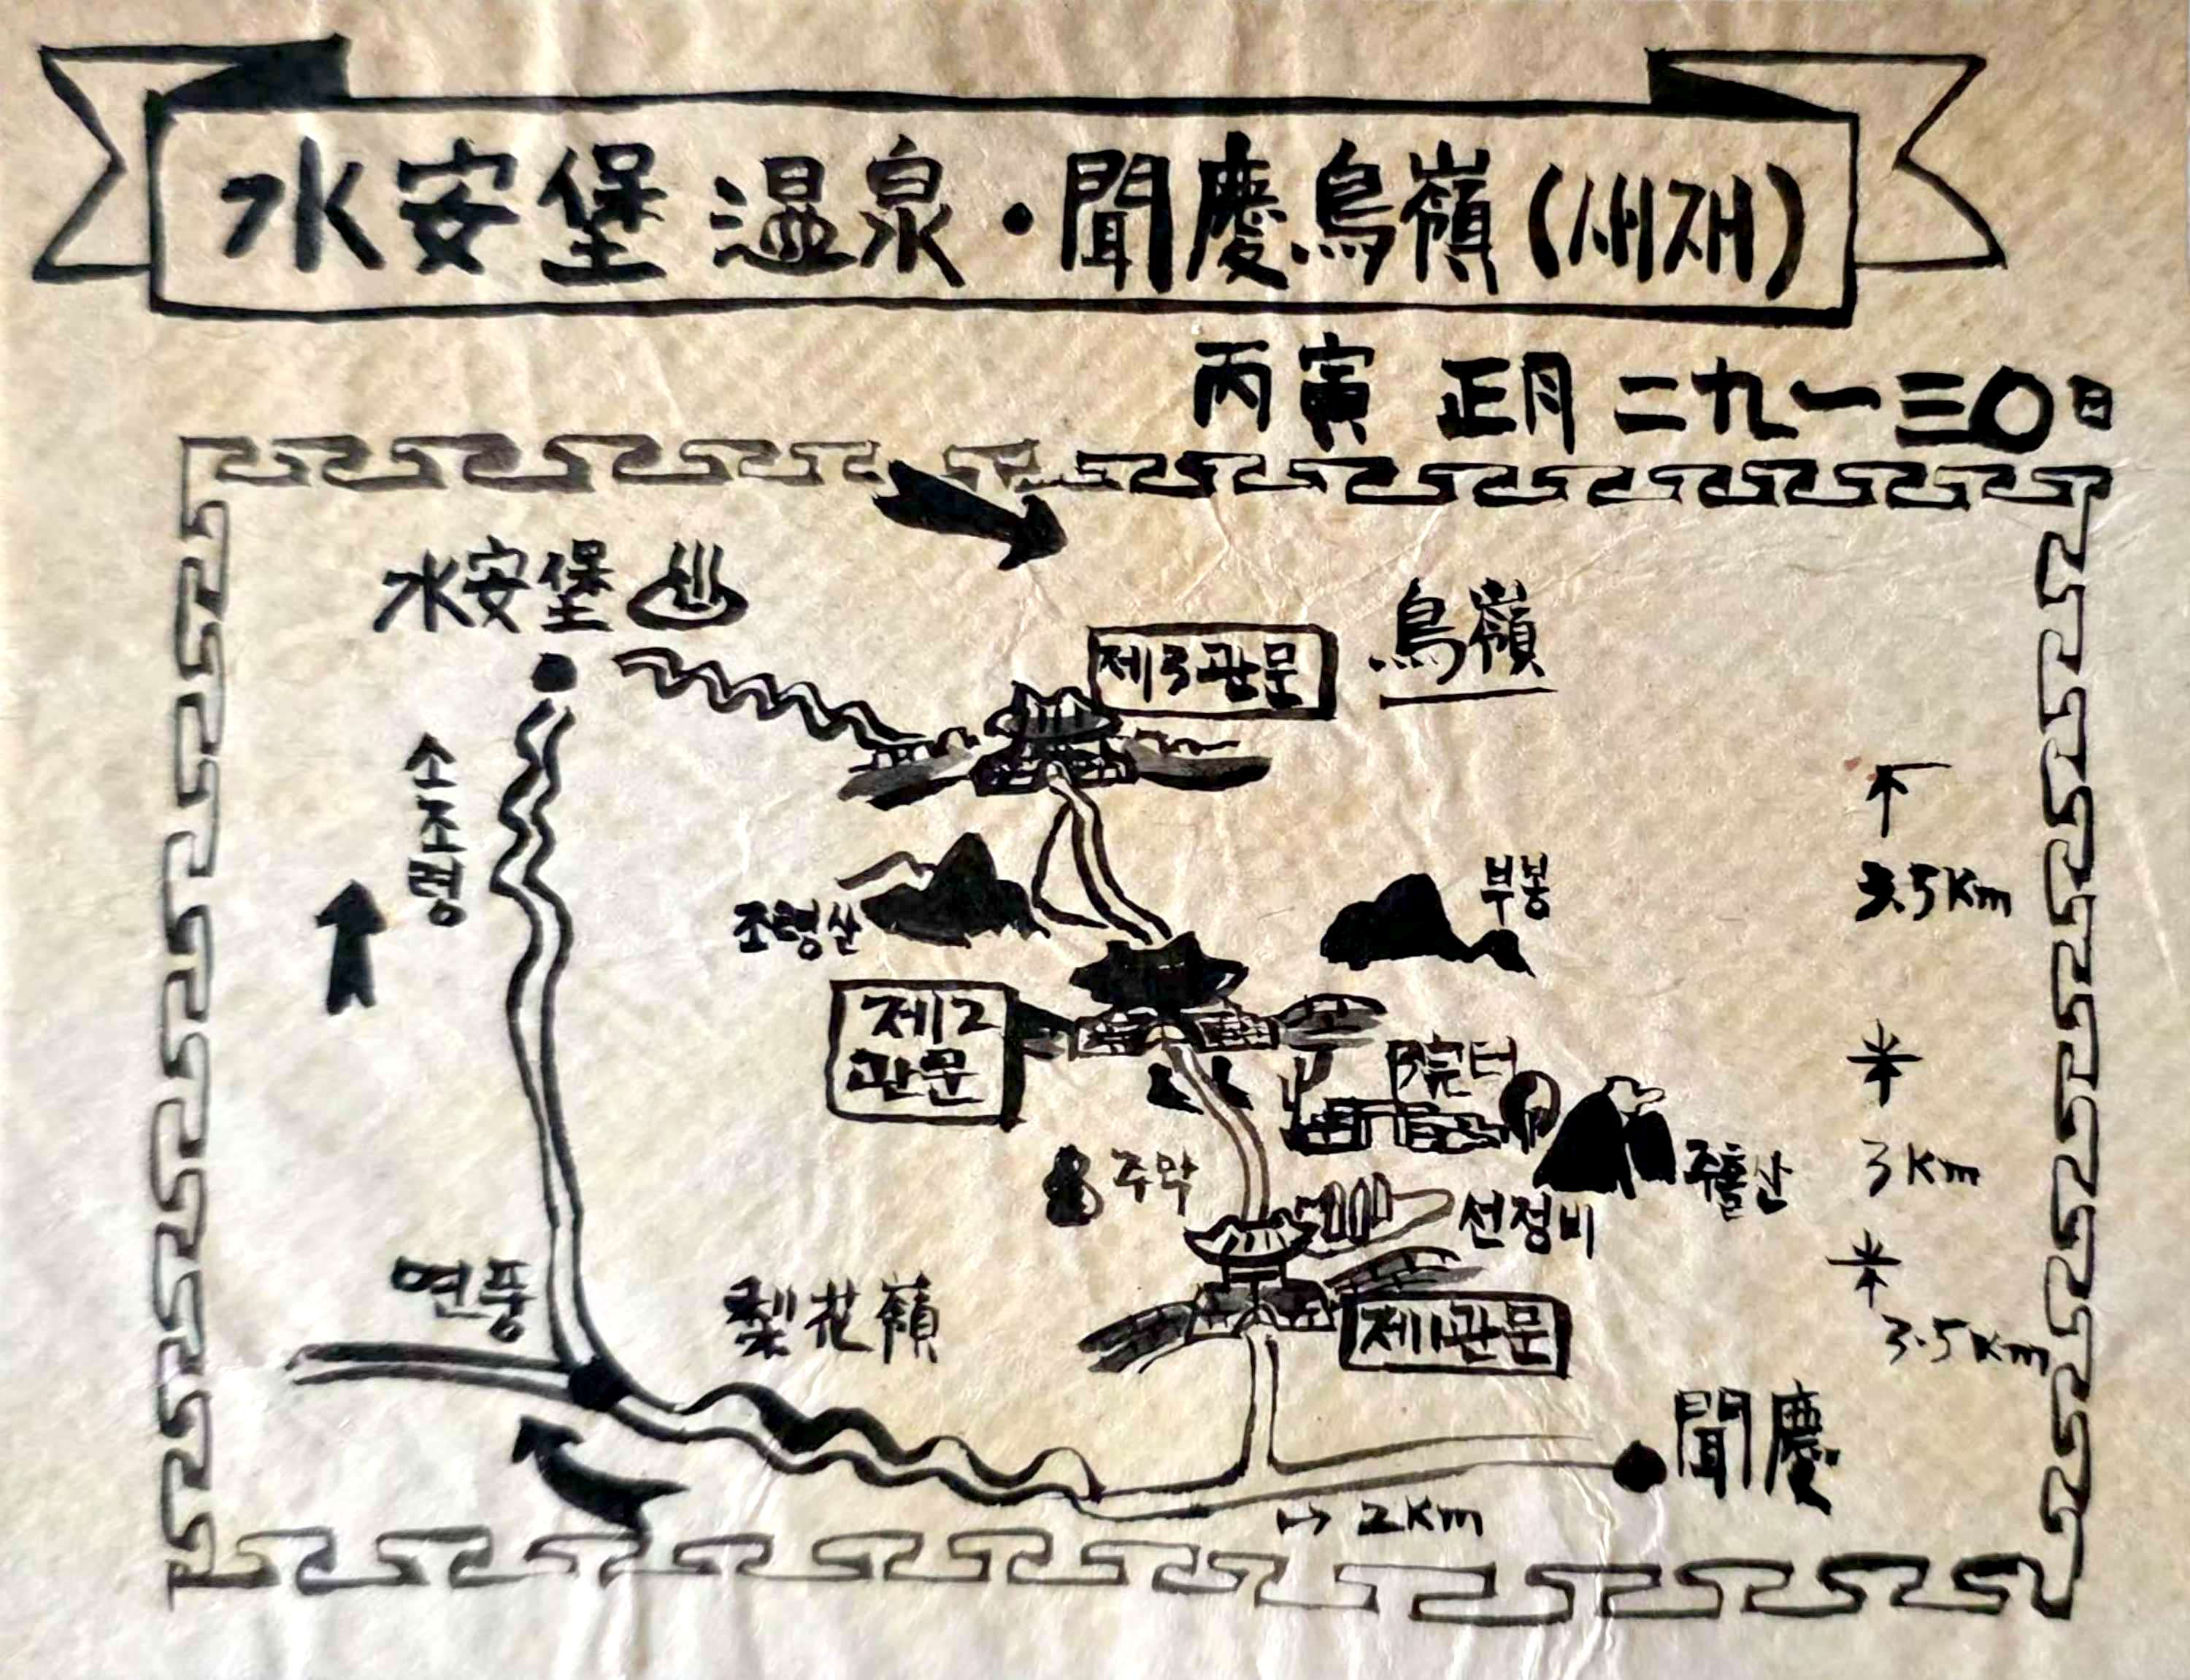 水安堡 温泉・聞慶鳥嶺(새재)
丙寅 正月 二九一三〇日
水安堡♨
제3관문
鳥嶺
소조령
조령산
부봉
3.5Km
제2
관문
院터
주막
선정비
주흘산
3Km
연풍
梨花嶺
제1관문
3.5Km
聞慶
↦ 2Km